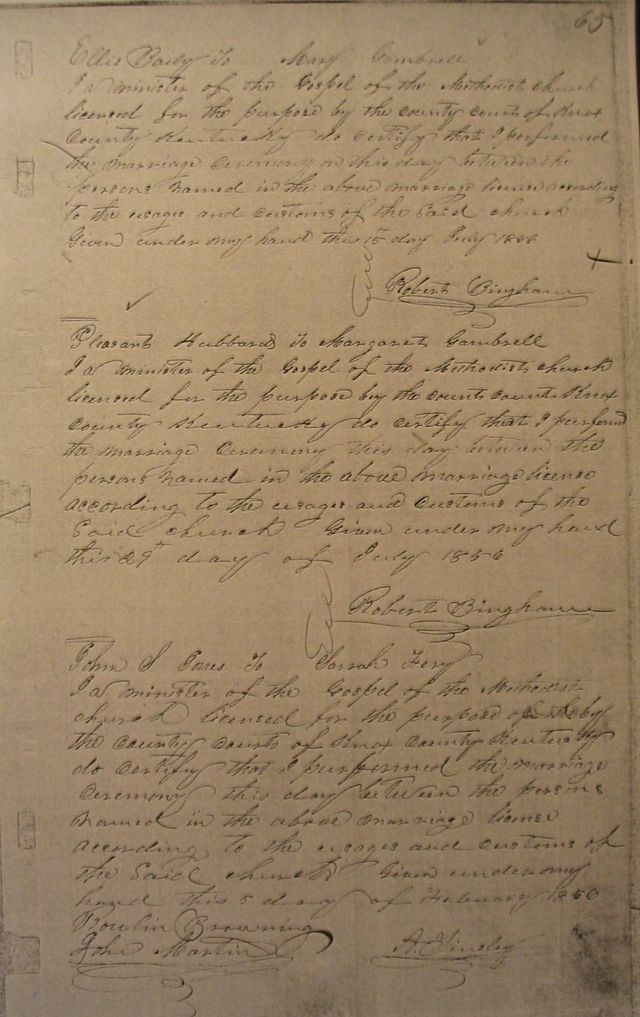 65
Ellis Baily To Mary Gambrell
I a minister of the Gospel of the Methodist church
licensed for the purpose by the county court of Knox
County Kentucky do certify that I performed
the marriage ceremony on this day between the
persons named in the above marriage license according
to the usages and customs of the Said church
Given under my hand this 15 day July 1856
Robert Bingham
Pleasant Hubbard To Margaret Gambrell
I a minister of the Gospel of the Methodist church
licensed for the purpose by the county court Knox
County Kentucky do certify that I
the marriage ceremony this day between the
persons named in the above marriage license
according to the usages and customs of the
Said church Given under my hand
this 29th day of July 1856
Robert Bingham
John J To Sarrah
I a minister of the Gospel of the Methodist
church licensed for the purpose by
the County Court of Knox County Kentucky
do certify that I purformed the marriage
ceremony this day between the persons
named in the above marriage license
according to the usages and customs of
the Said church Given under my
hand this 5 day of February 1856
Browning
John Martin A. Tinsley